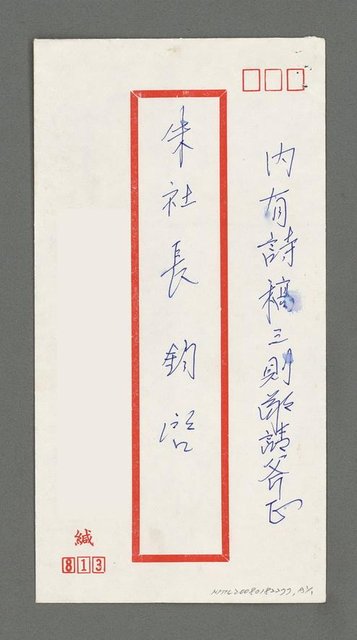 內有詩稿三則敬請斧正
朱社長 鈞啓
緘
813